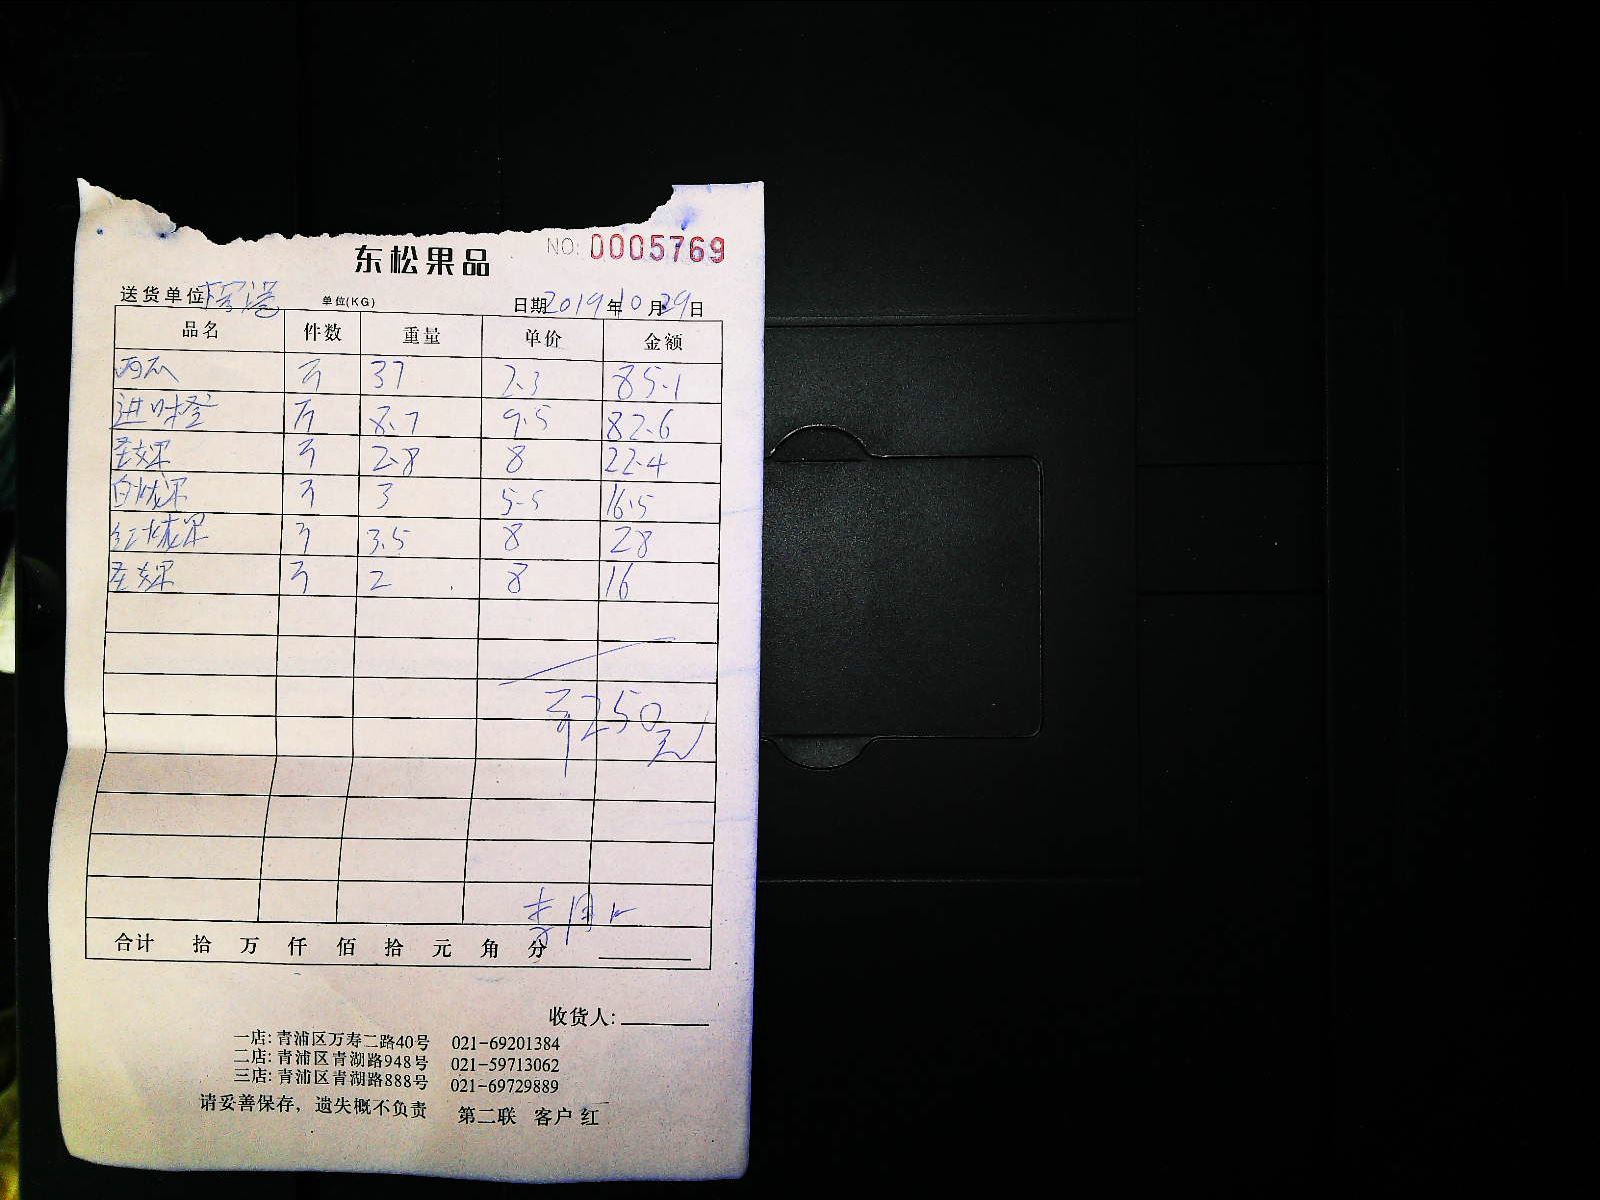 东松果品 NO: 0005769
送货单位 单位(KG) 日期2019年10月29日
品名 件数 重量 单价 金额
西瓜 37 2.3 85.1
进口橙 8.7 9.5 82.6
圣女果 2.8 8 22.4
白火龙果 3 5.5 16.5
红火龙果 3.5 8 28
圣女果 2 8 16
250元
合计 拾 万 仟 佰 拾 元 角 分
收货人:
一店: 青浦区万寿二路40号 021-69201384
二店: 青浦区青湖路948号 021-59713062
三店: 青浦区青湖路888号 021-69729889
请妥善保存，遗失概不负责 第二联 客户 红